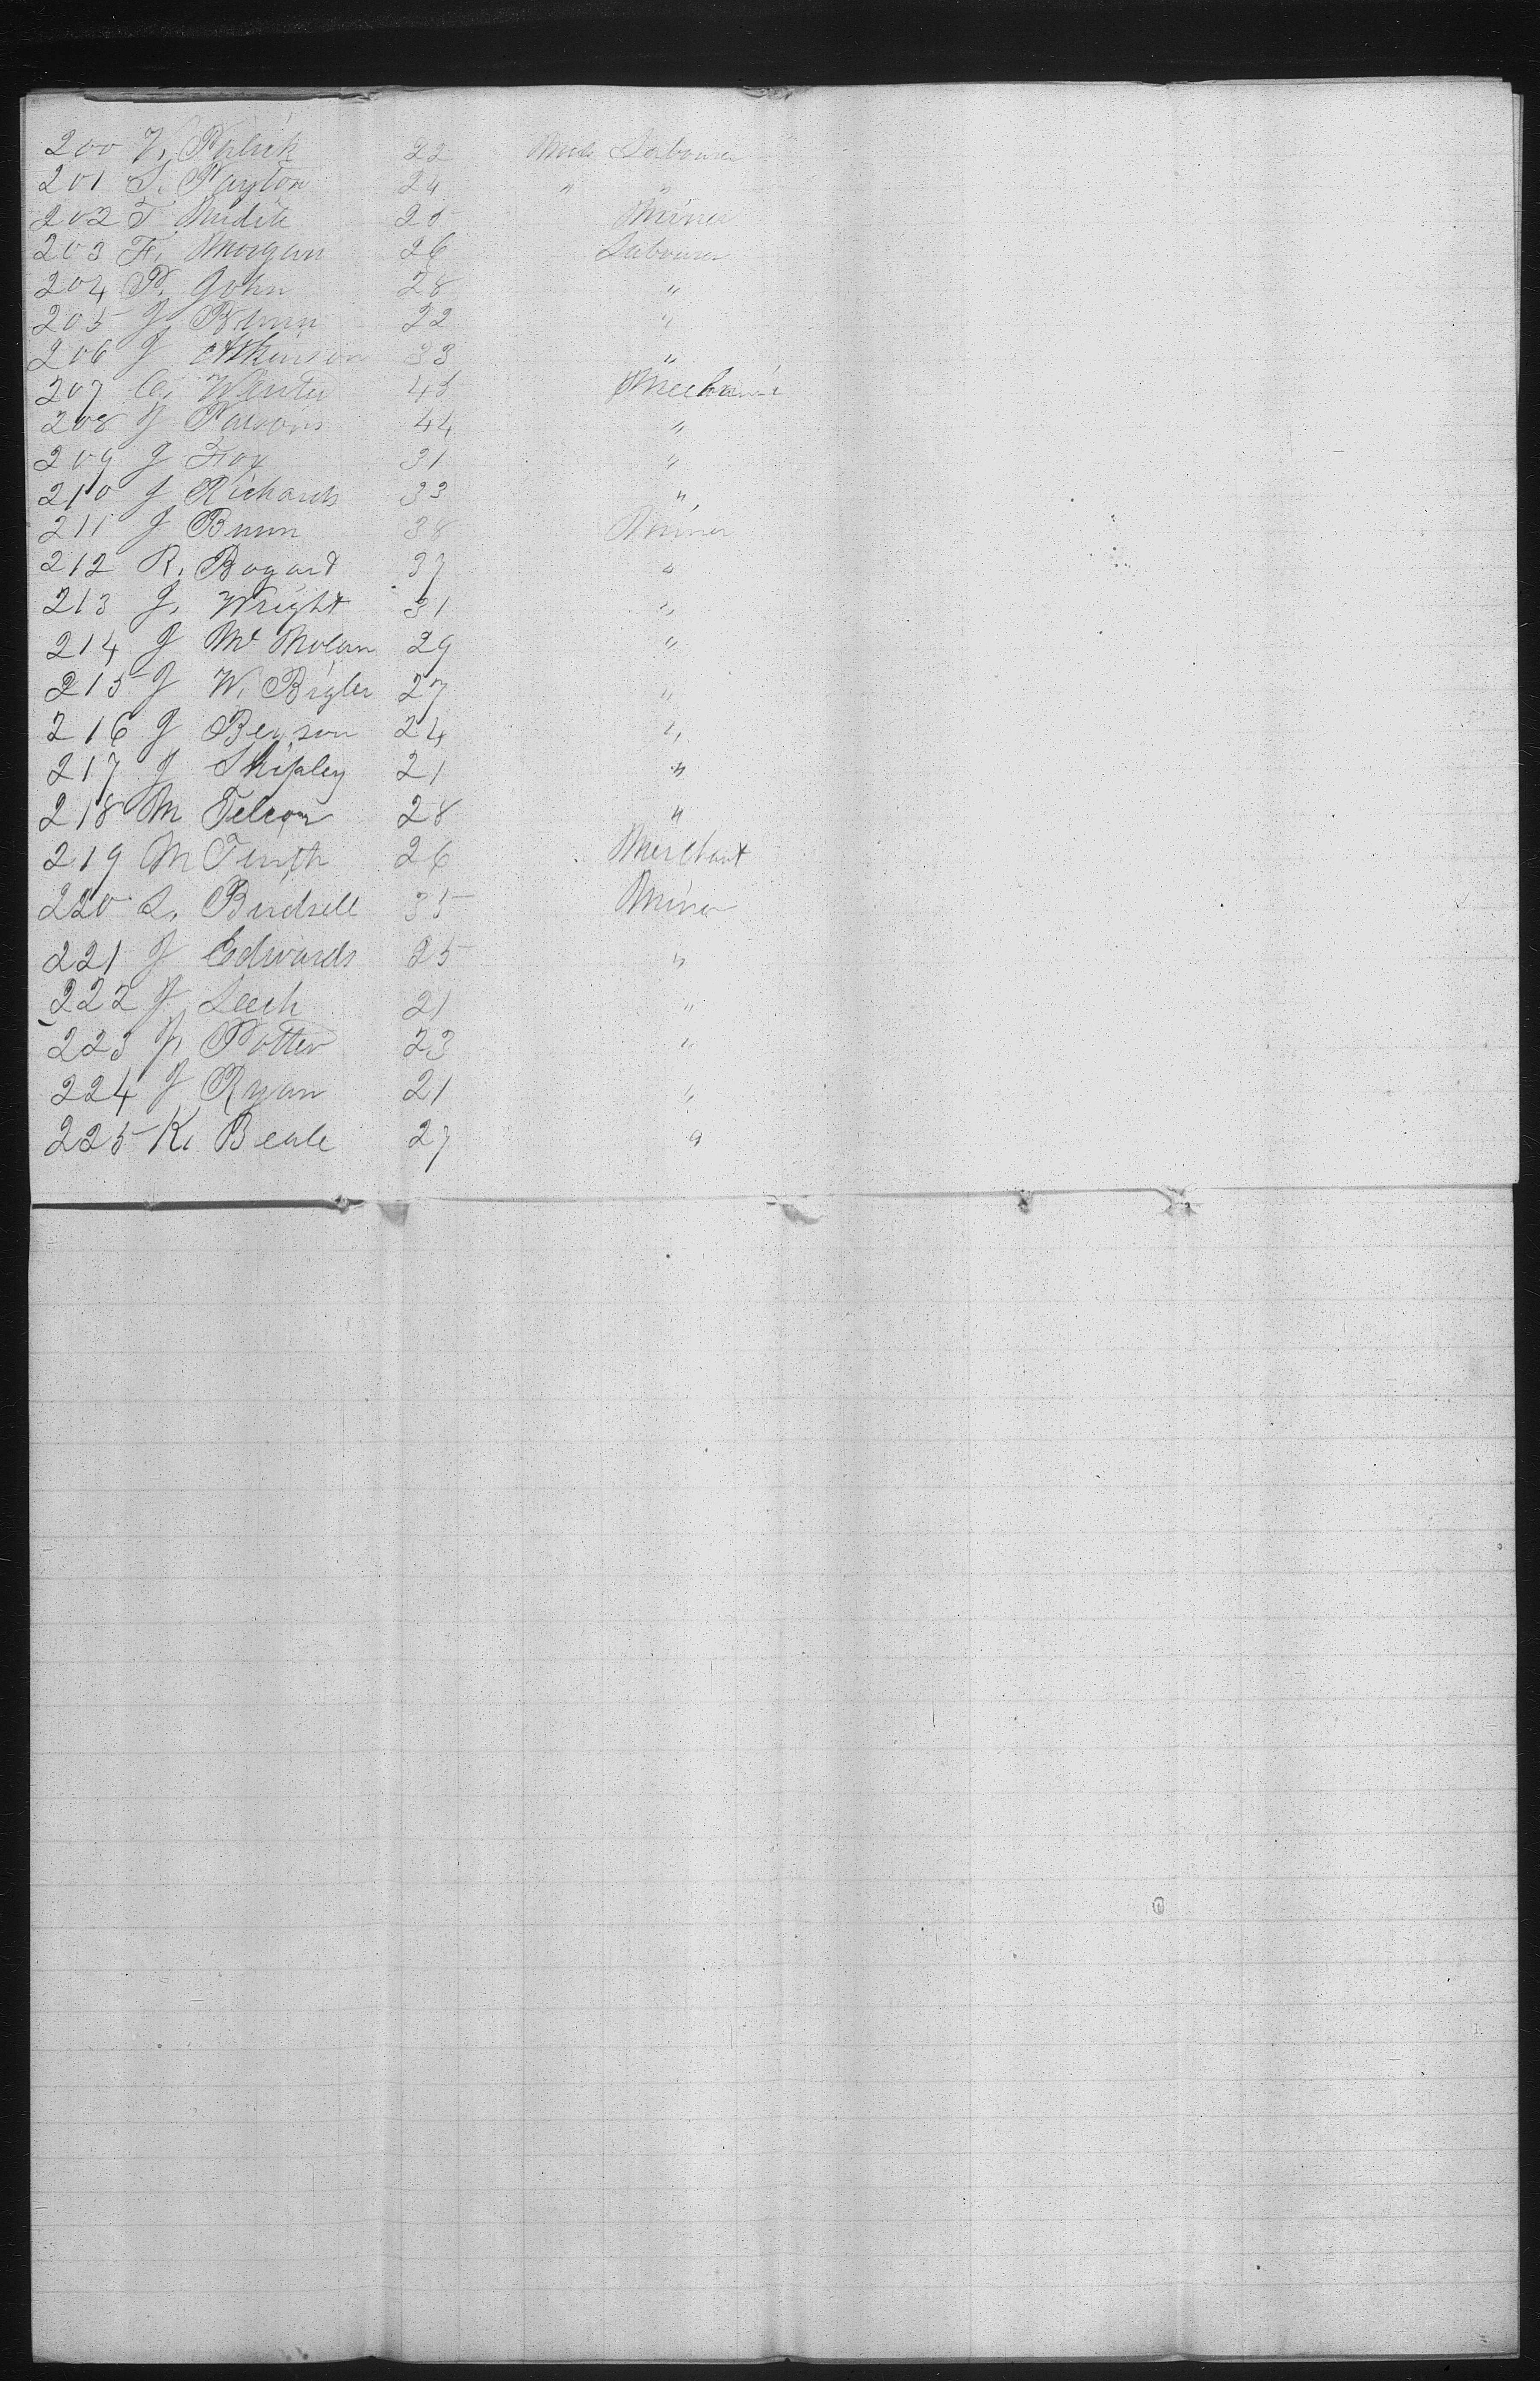 200 V. Patrick 22 Male Labourer
201 S. Payton 24 " "
202 T. 25 Miner
203 F. Morgan 26 Labourer
204 P. John 28 "
205 J. 22 "
206 J Atkinson 33 "
207 C. Winter 45 Mechanic
208 J Parsons 44 "
209 J Fox 31 "
210 J Richards 33 "
211 J Bunn 38 Miner
212 R. Bogart 37 "
213 J. Wright 31 "
214 J Mc Nolan 29 "
215 J W. Bigler 27 "
216 J Beyson 24 "
217 J Shipley 21 "
218 M 28 "
219 M 26 Merchant
220 L. Birdsell 35 Miner
221 J Edwards 25 "
222 J Leech 21 "
223 J. Potter 23 "
224 J Ryan 21 "
225 K. Beale 27 "